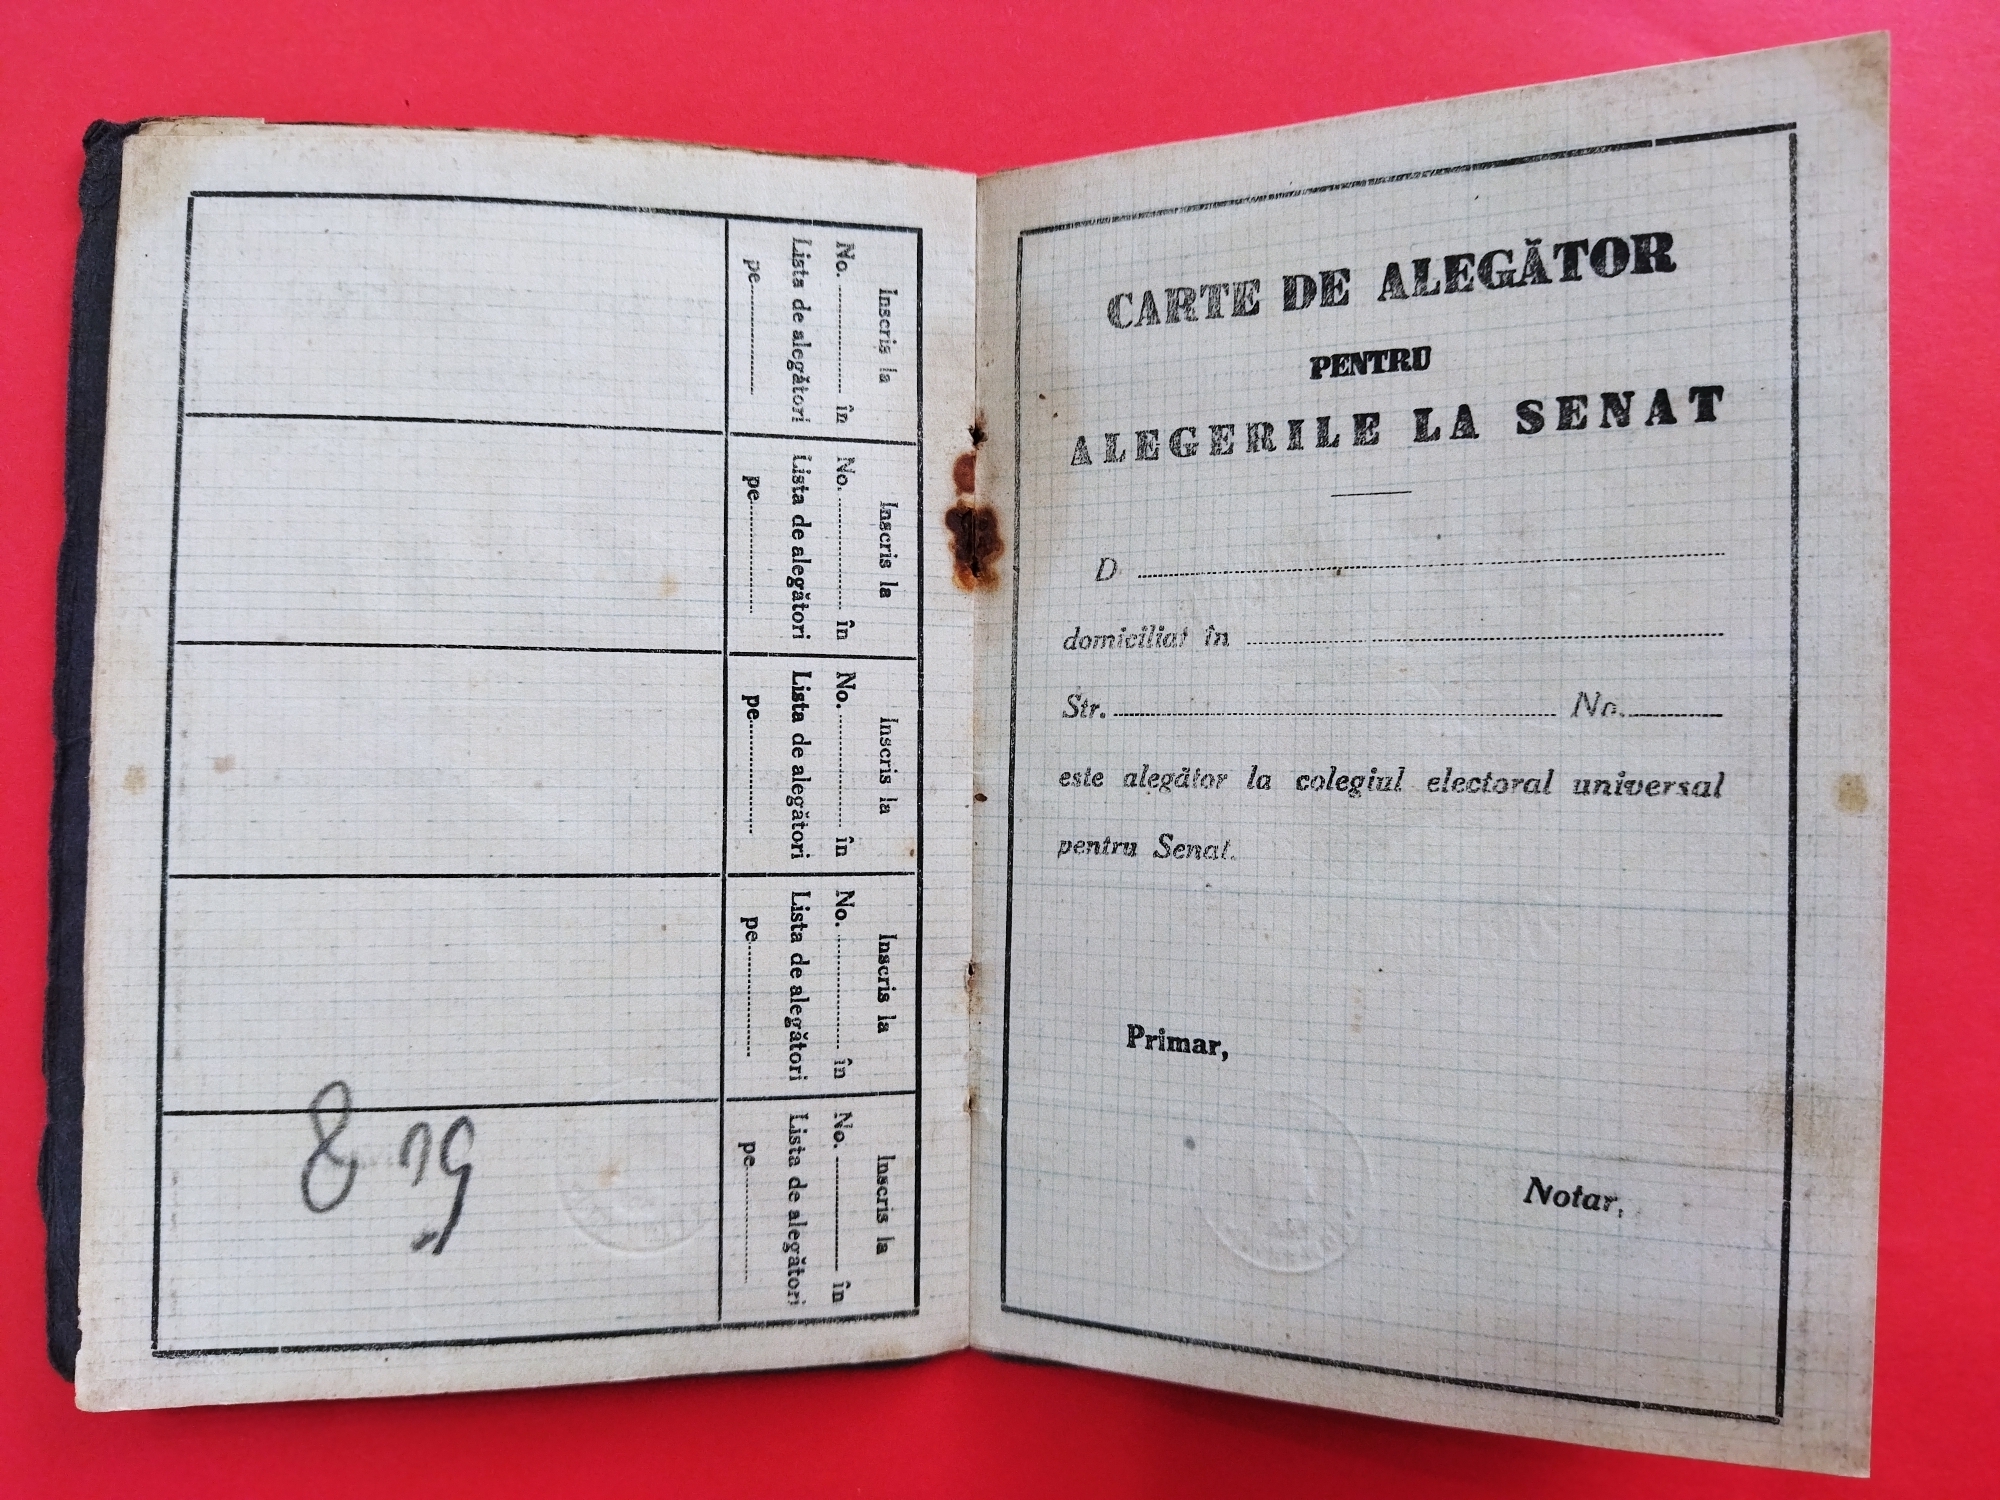 Inscris la
No. ........ în
Lista de alegători
pe........
Inscris la
No. ........ în
Lista de alegători
pe........
Inscris la
No. ........ în
Lista de alegători
pe........
Inscris la
No. ........ în
Lista de alegători
pe........
Inscris la
No. ........ în
Lista de alegători
pe........
CARTE DE ALEGĂTOR
PENTRU
ALEGERILE LA SENAT
D ........
domiciliat în ........
Str. ........ No. ........
este alegător la colegiul electoral universal
pentru Senat.
Primar,
Notar,